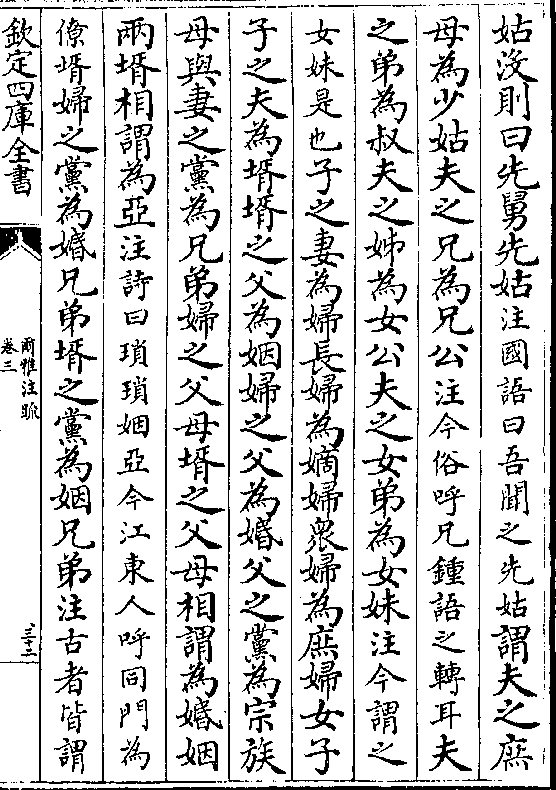 姑沒則曰先舅先姑注國語曰吾聞之先姑謂夫之庶
母為少姑夫之兄為兄公注今俗呼兄鍾語之轉耳夫
之弟為叔夫之姊為女公夫之女弟為女妹注今謂之
女妹是也子之妻為婦長婦為嫡婦衆婦為庶婦女子
子之夫為壻壻之父為姻婦之父為婚父之黨為宗族
母與妻之黨為兄弟婦之父母壻之父母相謂為婚姻
兩壻相謂為亞注詩曰瑣瑣姻亞今江東人呼同門為
僚壻婦之黨為婚兄弟壻之黨為姻兄弟注古者皆謂
欽定四庫全書
爾雅注疏
卷三
三十二